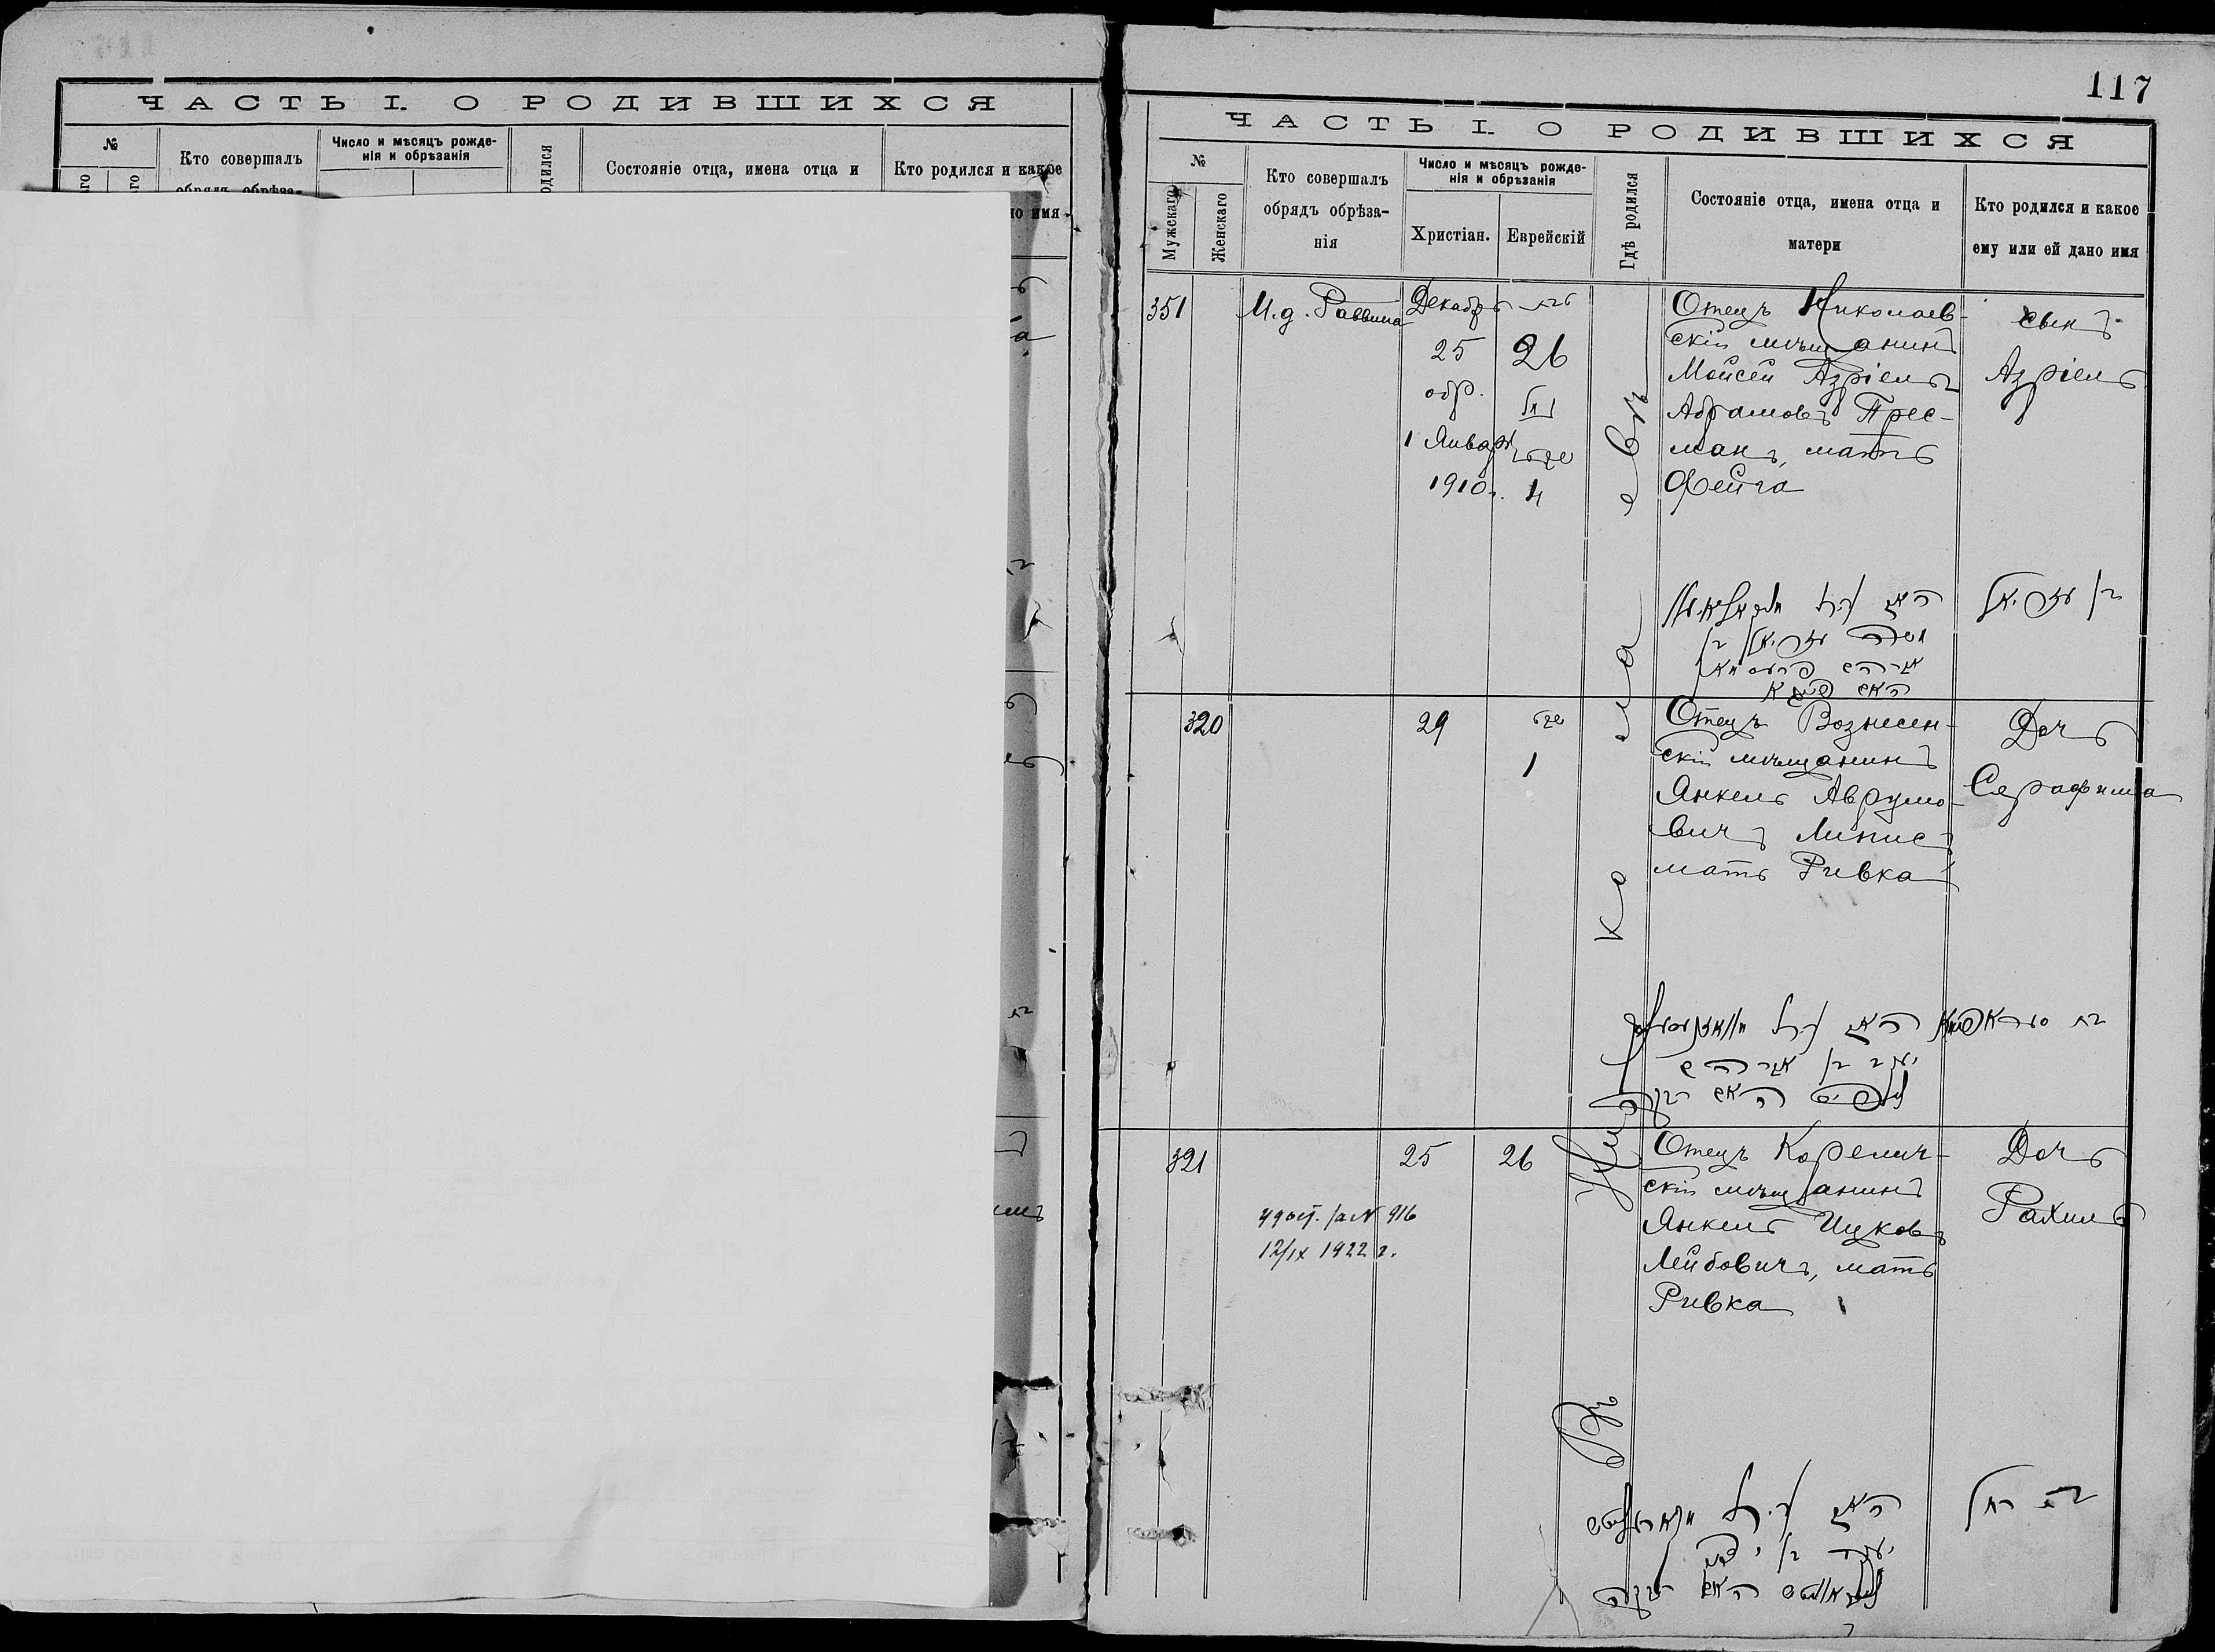 ЧАСТЬ I. О РОДИВШИХСЯ
№
Кто совершалъ
обрядъ обрѣза-
Число и мѣсяцъ рожде-
нія и обрѣзанія
одился
Состояніе отца, имена отца и
Кто родился и какое
но имя
117
ЧАСТЬ I. О РОДИВШИХСЯ
№
Мужскаго
Женскаго
Кто совершалъ
обрядъ обрѣза-
нія
Число и мѣсяцъ рожде-
нія и обрѣзанія
Христіан.
Еврейскій
Гдѣ родился
Состояніе отца, имена отца и
матери
Кто родился и какое
ему или ей дано имя
351
И.д. Раввина
Декабрь
25
обр.
1 Января
1910 г.
טבת
26
שבט
4
Отецъ Николаев-
скій мѣщанинъ
Мойсей Азріель
Абрамовъ Прес-
манъ, мать
Фейга
сынъ
Азріель
האב
משה עזריאל בן
אברהם
האם פייגא
בן עזריאל
320
29
שבט
1
Отецъ Вознесен-
скій мѣщанинъ
Янкель Аврумо-
вичъ Липисъ
мать Ривка
Дочь
Серафима
האב
יעקב בן אברהם
האם רבקה
בת
321
25
26
удост. за № 916
12/IX 1922 г.
Отецъ Корелич-
скій мѣщанинъ
Янкель Ицковъ
Лейбовичъ, мать
Ривка
Дочь
Рахиль
האב
יעקב בן יצחק
האם רבקה
בת רחל
Въ